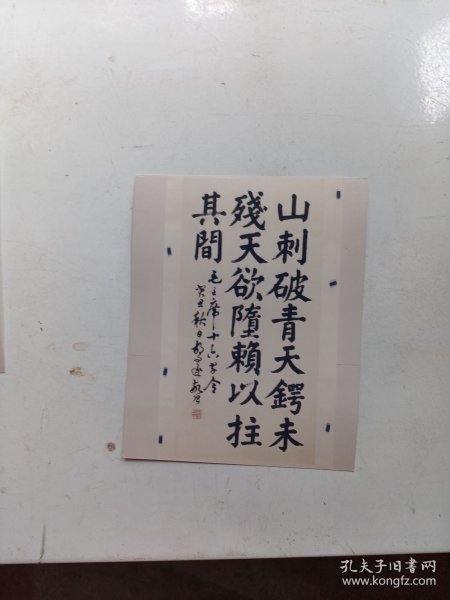 山刺破青天鍔未
殘天欲墮賴以拄
其間
毛主席十六字令
癸丑秋日
孔夫子旧书网
www.kongfz.com